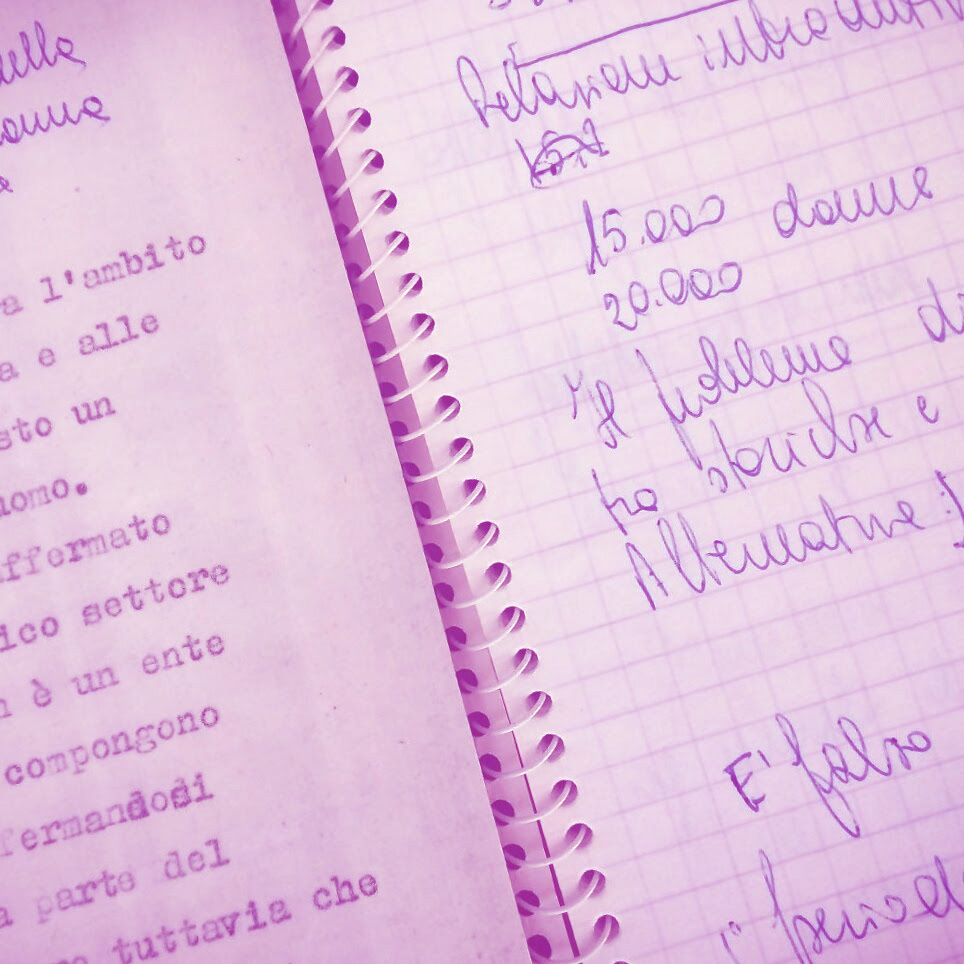 della
donna
a l'ambito
a e alle
sto un
uomo.
affermato
ico settore
n è un ente
compongono
fermandosi
a parte del
tuttavia che
Relazioni introduttive
15.000 donne
20.000
Il problema di
tra storiche e
Alternative:
E' falso
i period